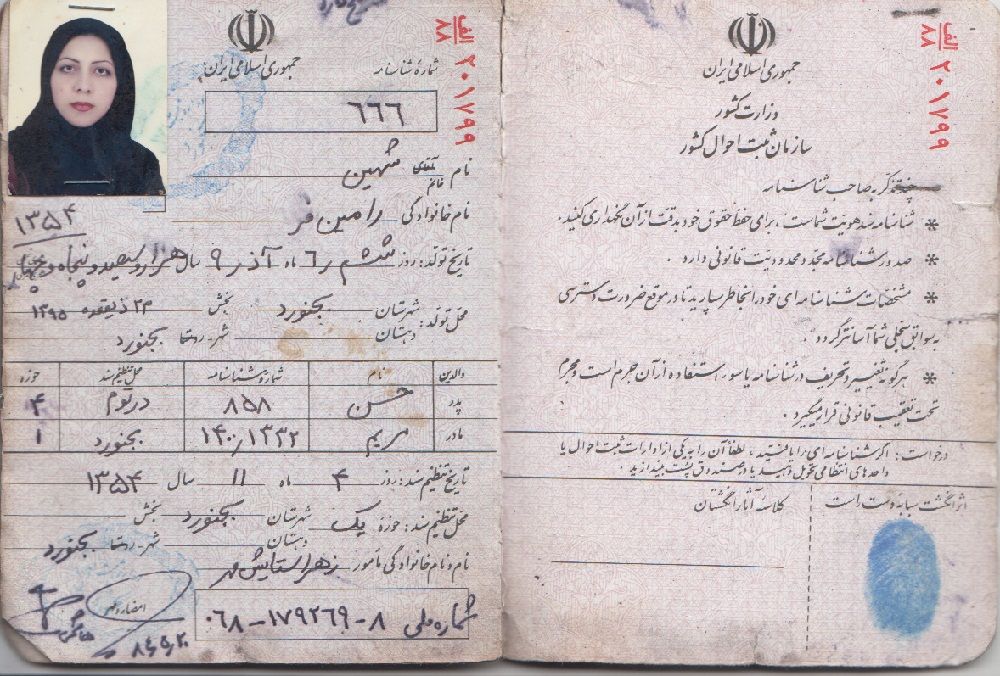 جمهوری اسلامی ایران
شماره شناسنامه
الف
۸۸
۲۰۱۷۹۹
۶۶۶
نام آقای خانم شهین
نام خانوادگی رامین فر
۱۳۵۴
تاریخ تولد: روز ششم ۶ ماه آذر ۹ سال هزار و سیصد و پنجاه و چهار
محل تولد: شهرستان بجنورد بخش ۲۳ ذیقعده ۱۳۹۵
دهستان شهر-روستا بجنورد
والدین نام شماره شناسنامه محل تنظیم سند حوزه
پدر حسن ۸۵۸ درتوم ۴
مادر مریم ۱۴۰/۱۳۳۲ بجنورد ۱
تاریخ تنظیم سند: روز ۴ ماه ۱۱ سال ۱۳۵۴
محل تنظیم سند: حوزه یک شهرستان بجنورد بخش
دهستان شهر-روستا بجنورد
نام و نام خانوادگی مأمور زهرا ستایش مهر
امضاء و مهر
شماره ملی ۰۶۸-۱۷۹۲۶۹-۸
جمهوری اسلامی ایران
وزارت کشور
سازمان ثبت احوال کشور
الف
۸۸
۲۰۱۷۹۹
چند تذکر به صاحب شناسنامه
* شناسنامه سند هویت شماست، برای حفظ حقوق خود بدقت از آن نگهداری کنید.
* صدور شناسنامه مجدد محدودیت قانونی دارد.
* مشخصات شناسنامه ای خود را بخاطر بسپارید تا در موقع ضرورت دسترسی
به سوابق سجلی شما آسانتر گردد.
* هرگونه تغییر و تحریف در شناسنامه یا سوء استفاده از آن جرم است و مجرم
تحت تعقیب قانونی قرار میگیرد.
درخواست: اگر شناسنامه ای را یافتید، لطفاً آن را به یکی از ادارات ثبت احوال یا
واحدهای انتظامی تحویل دهید یا در صندوق پست بیندازید.
اثر انگشت سبابه دست راست
کلاسه آثار انگشتان